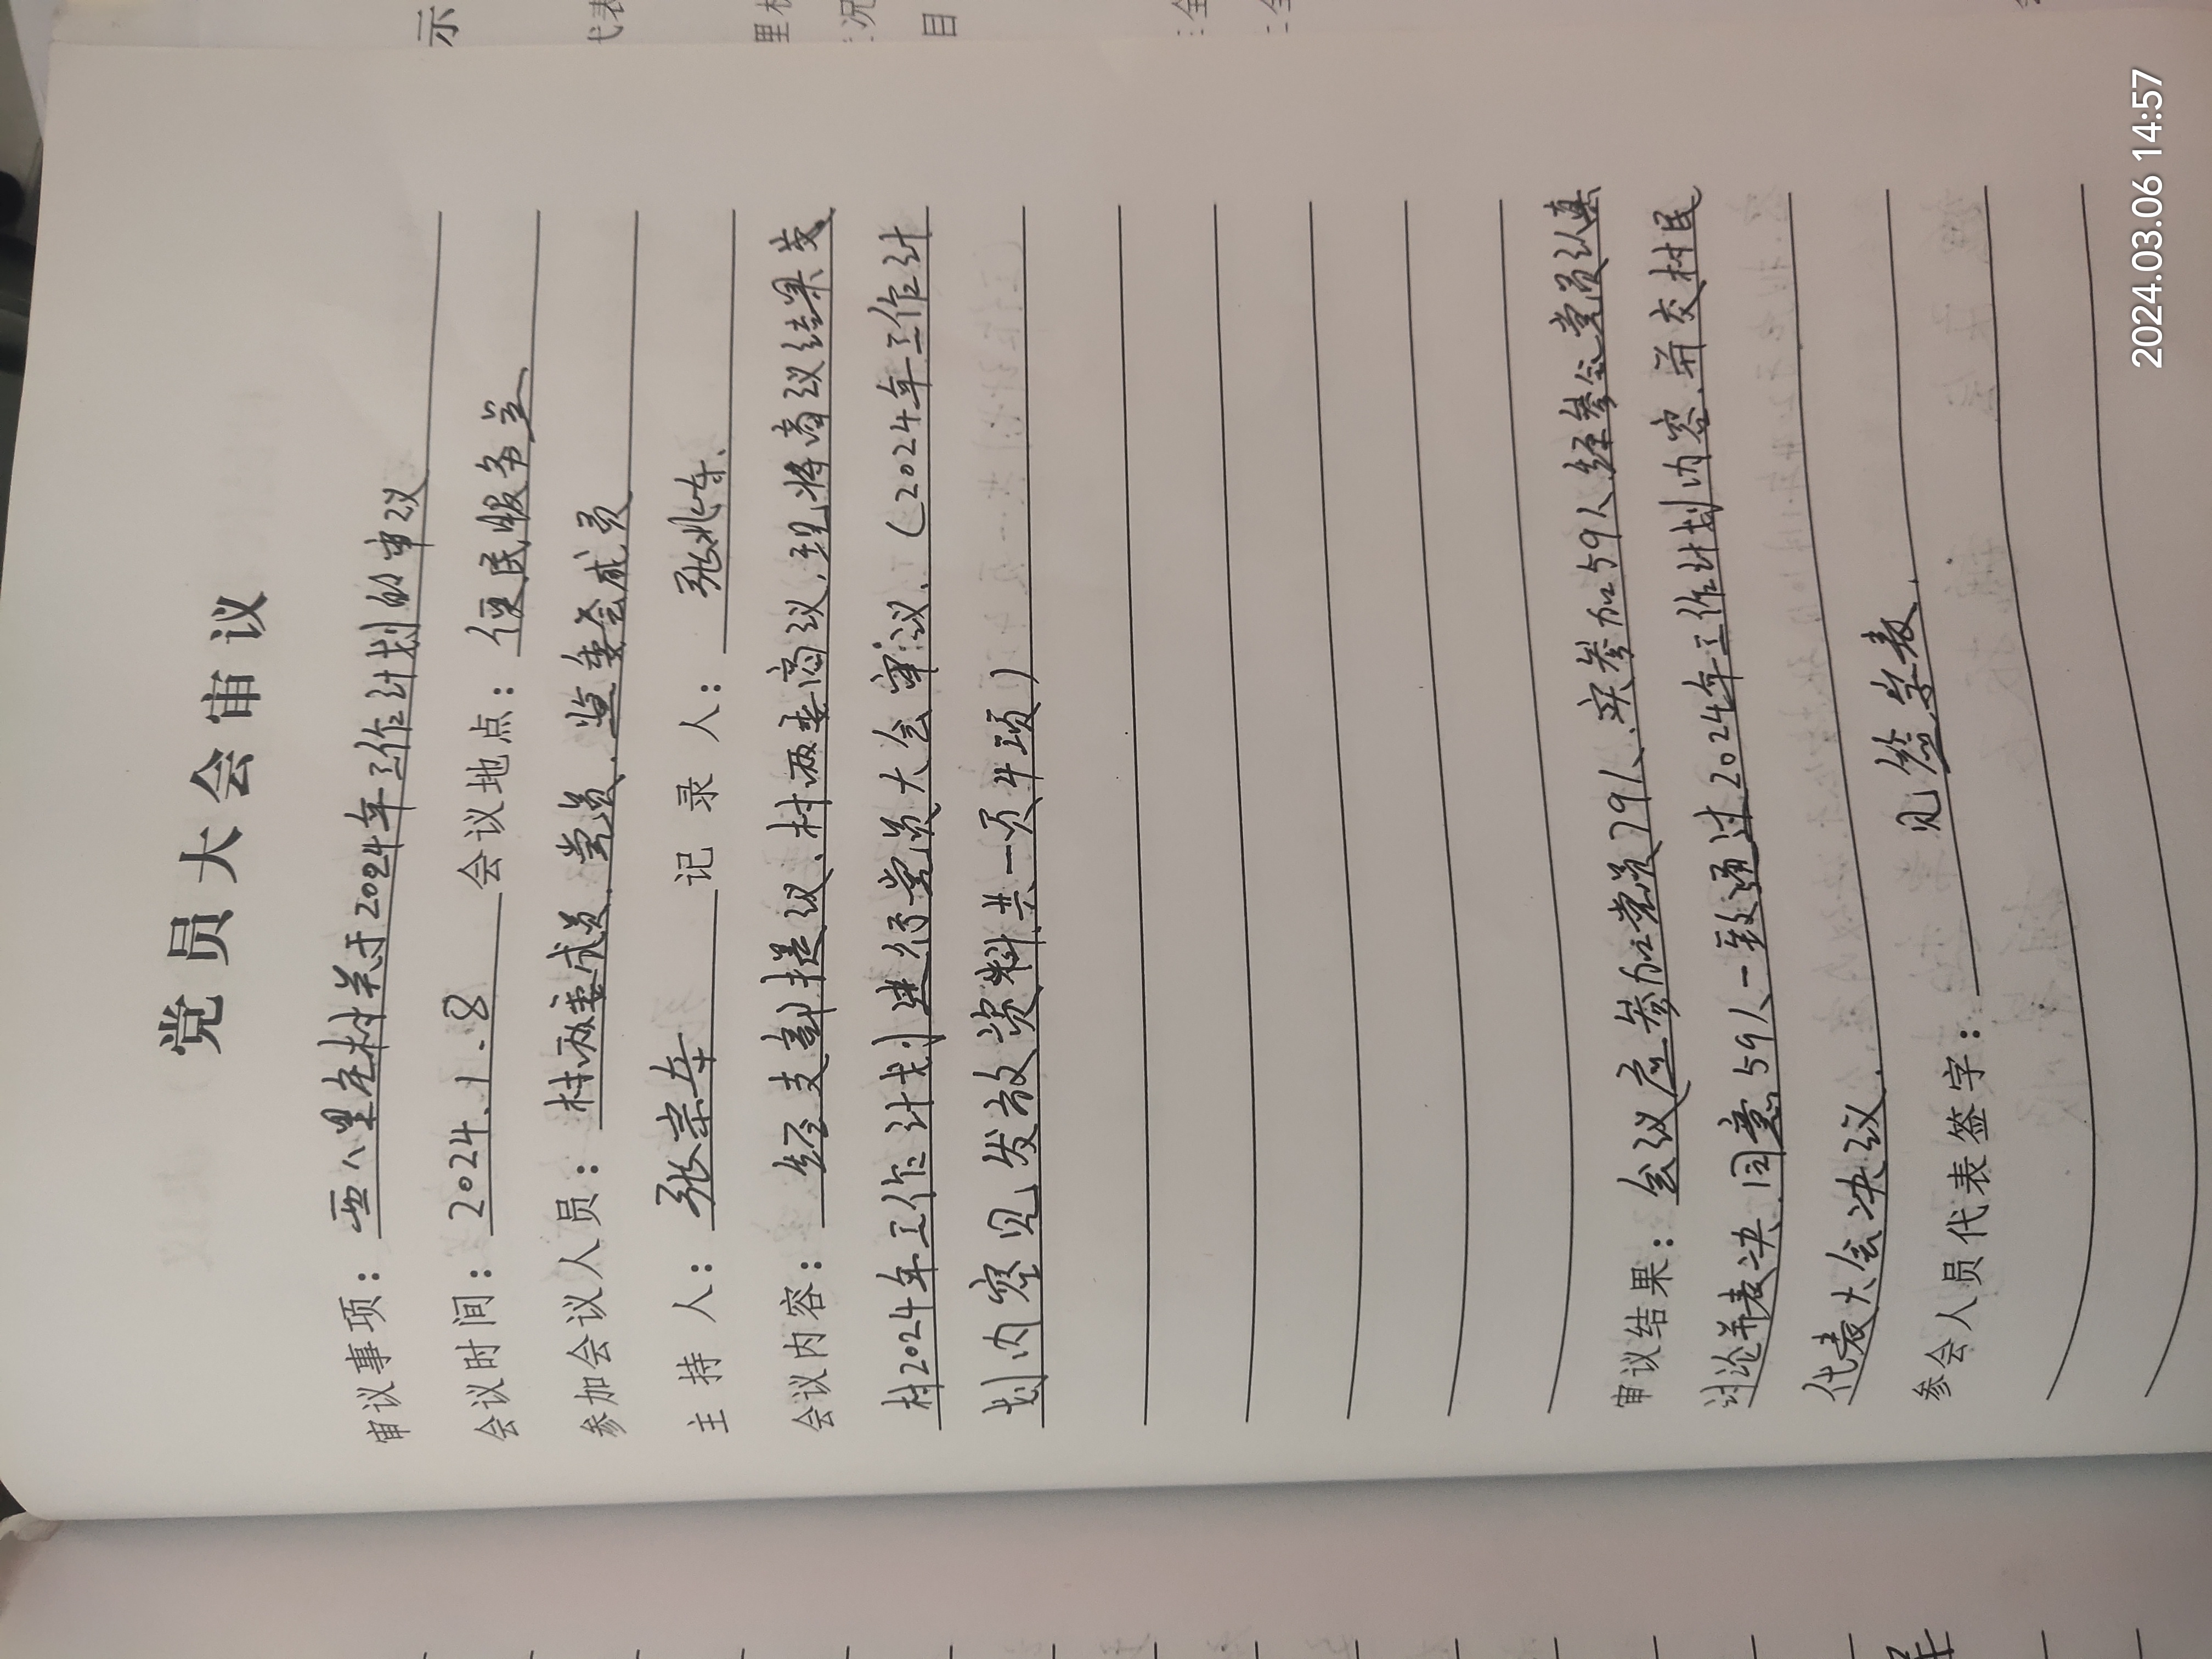 党员大会审议
审议事项：西八里庄村关于2024年工作计划的审议
会议时间：2024.1.8 会议地点：便民服务点
参加会议人员：村两委成员、党员、监委会成员
主持人：张宗 记录人：张兆东
会议内容：经支部提议、村两委商议，现将商议结果关
村2024年工作计划进行党员大会审议。（2024年工作计
划内容见发放资料共一页4项）
审议结果：会议应参加党员79人，实参加59人，经参会党员认真
讨论并表决，同意59人一致通过2024年工作计划内容，并交村民
代表大会决议。
参会人员代表签字：见签字表。
示
代表
况
目
全
全
2024.03.06 14:57